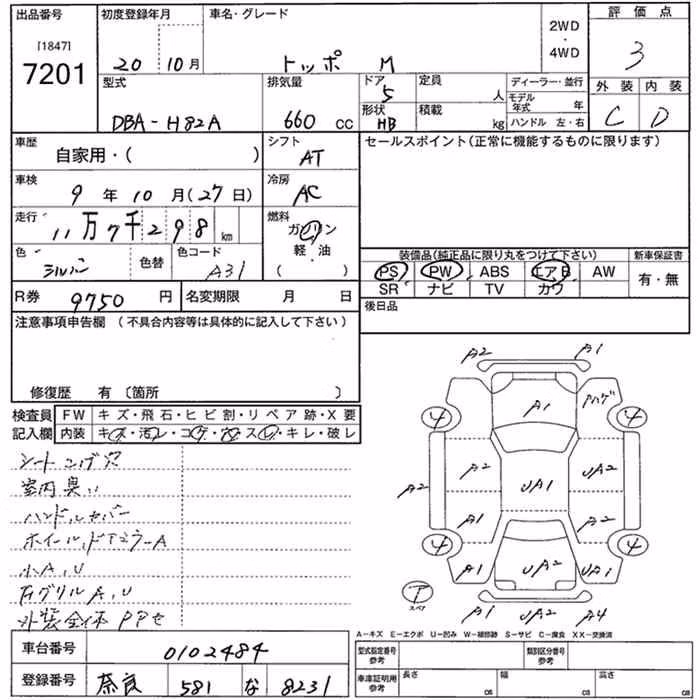 出品番号
[1847]
7201
初度登録年月
20 10月
車名・グレード
トッポ M
2WD
・
4WD
評価点
3
型式
DBA-H82A
排気量
660 cc
ドア
5
形状
HB
定員
人
積載
kg
ディーラー・並行
モデル年式 年
ハンドル 左・右
外装 内装
C D
車歴
自家用・( )
シフト
AT
セールスポイント(正常に機能するものに限ります)
車検
9 年 10 月(27日)
冷房
AC
走行
11万7千298 km
燃料
ガソリン
・
軽・油
( )
色
シルバー
色替
色コード
A31
装備品(純正品に限り丸をつけて下さい)
PS PW ABS エアB AW
SR ナビ TV カワ
新車保証書
有・無
R券
9750 円
名変期限 月 日
後日品
注意事項申告欄 (不具合内容等は具体的に記入して下さい)
修復歴 有〔箇所 〕
検査員
記入欄
FW キズ・飛石・ヒビ割・リペア跡・X要
内装 キズ・汚レ・コゲ・穴・スレ・キレ・破レ
シートコゲ穴
室内臭い
ハンドルカバー
ホイール,ドアミラーA
小A,U
右グリルA,U
外装全体PPセ
A2 A1
A1
Pハゲ
4 4
A2 A2 UA1 UA2
A1 A2
4 4
A1 UA2 UA1
T
スペア
A1 UA2 A4
A-キズ E-エクボ U-凹み W-補修跡 S-サビ C-腐食 XX-交換済
車台番号
0102484
登録番号
奈良 581 な 8231
型式指定番号
参考
類別区分番号
参考
車庫証明用
参考
長さ cm
幅 cm
高さ cm